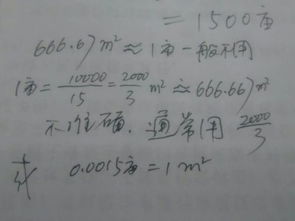 = 1500亩
666.67m² ≈ 1亩 一般不用
1亩 = 10000/15 = 2000/3 m² ≈ 666.66m²
不准确. 通常用 2000/3
或 0.0015亩 = 1m²